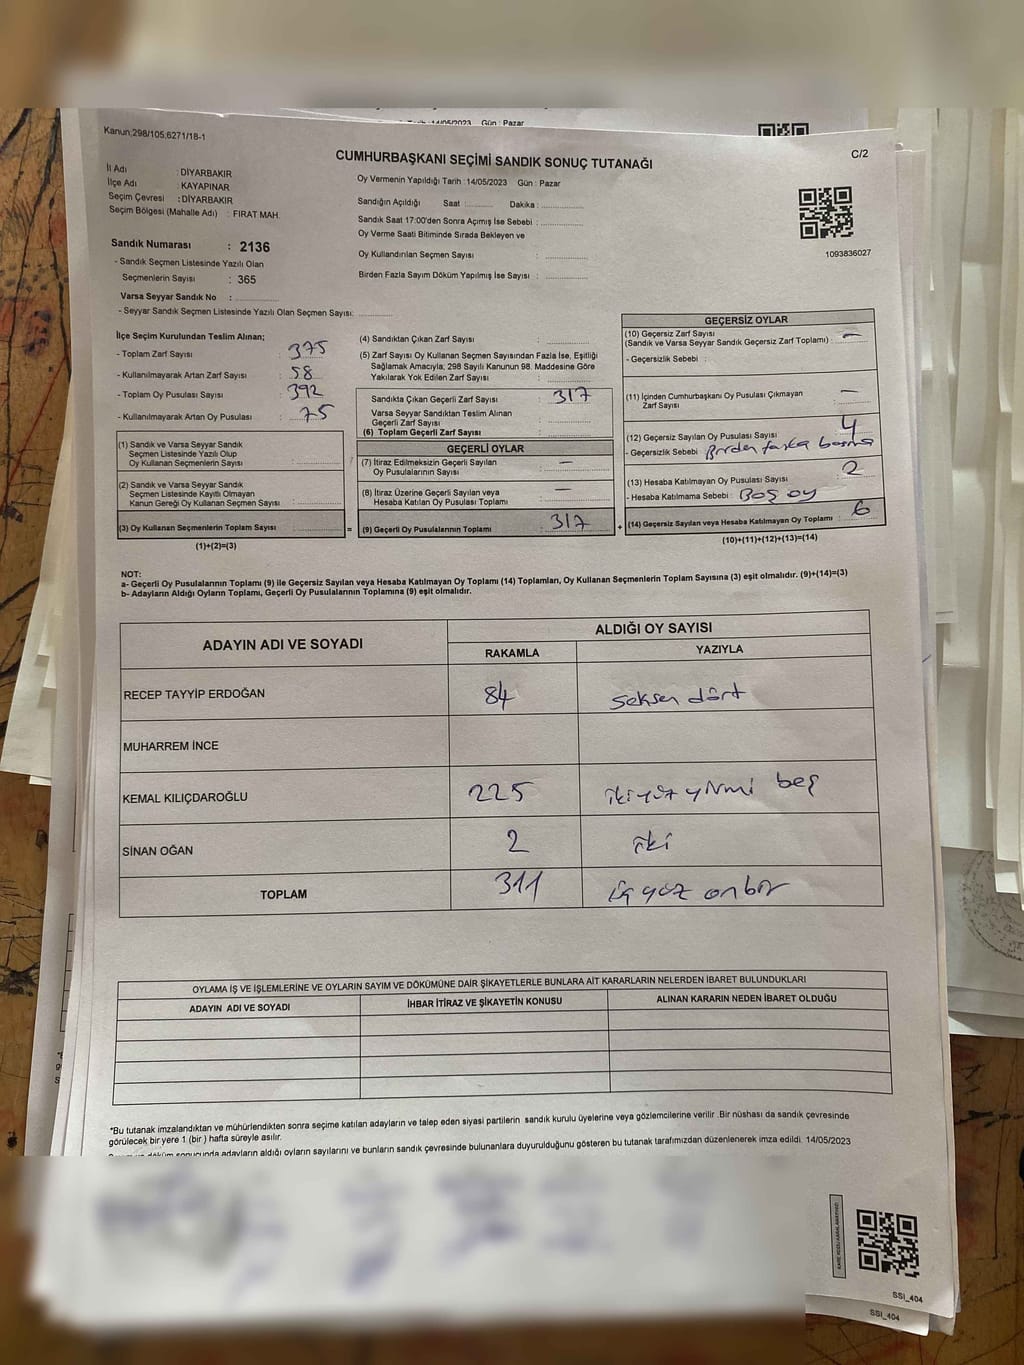 14/05/2023 Gün : Pazar
Kanun;298/105;6271/18-1
CUMHURBAŞKANI SEÇİMİ SANDIK SONUÇ TUTANAĞI
C/2
İl Adı : DİYARBAKIR
İlçe Adı : KAYAPINAR
Seçim Çevresi : DİYARBAKIR
Seçim Bölgesi (Mahalle Adı) : FIRAT MAH.
Oy Vermenin Yapıldığı Tarih : 14/05/2023 Gün : Pazar
Sandığın Açıldığı Saat :.......... Dakika :...............
Sandık Saat 17:00'den Sonra Açımış İse Sebebi :...............
Oy Verme Saati Bitiminde Sırada Bekleyen ve
Oy Kullandırılan Seçmen Sayısı :...............
Birden Fazla Sayım Döküm Yapılmış İse Sayısı :...............
1093836027
Sandık Numarası : 2136
- Sandık Seçmen Listesinde Yazılı Olan
Seçmenlerin Sayısı : 365
Varsa Seyyar Sandık No :...............
- Seyyar Sandık Seçmen Listesinde Yazılı Olan Seçmen Sayısı: ............
İlçe Seçim Kurulundan Teslim Alınan;
- Toplam Zarf Sayısı : 375
- Kullanılmayarak Artan Zarf Sayısı : 58
- Toplam Oy Pusulası Sayısı : 392
- Kullanılmayarak Artan Oy Pusulası : 75
(1) Sandık ve Varsa Seyyar Sandık
Seçmen Listesinde Yazılı Olup
Oy Kullanan Seçmenlerin Sayısı :...............
(2) Sandık ve Varsa Seyyar Sandık
Seçmen Listesinde Kayıtlı Olmayan
Kanun Gereği Oy Kullanan Seçmen Sayısı :...............
(3) Oy Kullanan Seçmenlerin Toplam Sayısı :............... =
(1)+(2)=(3)
(4) Sandıktan Çıkan Zarf Sayısı :...............
(5) Zarf Sayısı Oy Kullanan Seçmen Sayısından Fazla İse, Eşitliği
Sağlamak Amacıyla; 298 Sayılı Kanunun 98. Maddesine Göre
Yakılarak Yok Edilen Zarf Sayısı :...............
Sandıkta Çıkan Geçerli Zarf Sayısı : 317
Varsa Seyyar Sandıktan Teslim Alınan
Geçerli Zarf Sayısı :...............
(6) Toplam Geçerli Zarf Sayısı :...............
GEÇERLİ OYLAR
(7) İtiraz Edilmeksizin Geçerli Sayılan
Oy Pusulalarının Sayısı : —
(8) İtiraz Üzerine Geçerli Sayılan veya
Hesaba Katılan Oy Pusulası Toplamı : —
(9) Geçerli Oy Pusulalarının Toplamı : 317 +
GEÇERSİZ OYLAR
(10) Geçersiz Zarf Sayısı
(Sandık ve Varsa Seyyar Sandık Geçersiz Zarf Toplamı) : —
- Geçersizlik Sebebi :
(11) İçinden Cumhurbaşkanı Oy Pusulası Çıkmayan
Zarf Sayısı : —
(12) Geçersiz Sayılan Oy Pusulası Sayısı : 4
- Geçersizlik Sebebi : Birden fazla basma
(13) Hesaba Katılmayan Oy Pusulası Sayısı : 2
- Hesaba Katılmama Sebebi : Boş oy
(14) Geçersiz Sayılan veya Hesaba Katılmayan Oy Toplamı : 6
(10)+(11)+(12)+(13)=(14)
NOT:
a- Geçerli Oy Pusulalarının Toplamı (9) ile Geçersiz Sayılan veya Hesaba Katılmayan Oy Toplamı (14) Toplamları, Oy Kullanan Seçmenlerin Toplam Sayısına (3) eşit olmalıdır. (9)+(14)=(3)
b- Adayların Aldığı Oyların Toplamı, Geçerli Oy Pusulalarının Toplamına (9) eşit olmalıdır.
ADAYIN ADI VE SOYADI
ALDIĞI OY SAYISI
RAKAMLA YAZIYLA
RECEP TAYYİP ERDOĞAN 84 seksen dört
MUHARREM İNCE
KEMAL KILIÇDAROĞLU 225 ikiyüz yirmi beş
SİNAN OĞAN 2 iki
TOPLAM 311 üç yüz onbir
OYLAMA İŞ VE İŞLEMLERİNE VE OYLARIN SAYIM VE DÖKÜMÜNE DAİR ŞİKAYETLERLE BUNLARA AİT KARARLARIN NELERDEN İBARET BULUNDUKLARI
ADAYIN ADI VE SOYADI İHBAR İTİRAZ VE ŞİKAYETİN KONUSU ALINAN KARARIN NEDEN İBARET OLDUĞU
*Bu tutanak imzalandıktan ve mühürlendikten sonra seçime katılan adayların ve talep eden siyasi partilerin sandık kurulu üyelerine veya gözlemcilerine verilir .Bir nüshası da sandık çevresinde
görülecek bir yere 1 (bir ) hafta süreyle asılır.
sonucunda adayların aldığı oyların sayılarını ve bunların sandık çevresinde bulunanlara duyurulduğunu gösteren bu tutanak tarafımızdan düzenlenerek imza edildi. 14/05/2023
SSİ_404
SSİ_404